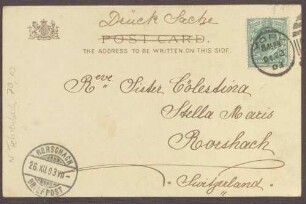 Drück Sache
POST CARD.
THE ADDRESS TO BE WRITTEN ON THIS SIDE
Reve Sister Cölestina
Stella Maris
Rorshach
Switzerland
RORSCHACH
26.XII.03 VII
BRIEFPOST